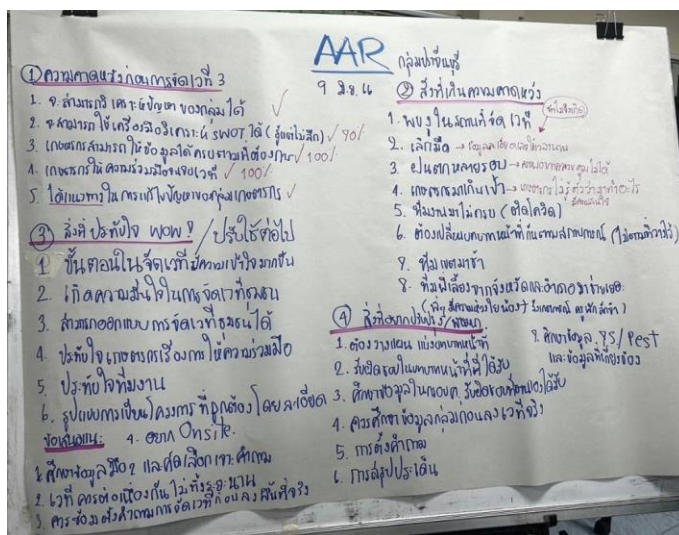 AAR กลุ่มปราจีนบุรี
9 มิ.ย. 66
① ความคาดหวังก่อนการจัดเวที 3
1. จะสามารถวิเคราะห์ปัญหาของกลุ่มได้ ✓
2. จะสามารถใช้เครื่องมือวิเคราะห์ SWOT ได้ (รู้แต่ไม่ลึก) ✓ 90%
3. เกษตรกรสามารถให้ข้อมูลได้ครบตามที่ต้องการ ✓ 100%
4. เกษตรกรให้ความร่วมมือจนจบเวที ✓ 100%
5. ได้แนวทางในการแก้ไขปัญหาของกลุ่มเกษตรกร ✓
② สิ่งที่เกินความคาดหวัง
1. พบงูในสถานที่จัดเวที
2. เลิกมืด →
3. ฝนตกหลายรอบ →
4. เกษตรกรมาเกินเป้า → เกษตรกรไม่รู้ตัวว่ามาทำอะไร
5. ทีมงานมาไม่ครบ (ติดโควิด)
6. ต้องเปลี่ยนบทบาทหน้าที่กันตามสถานการณ์ (ไม่ตามที่วางไว้)
7. ทีมเขตมาช้า
8. ทีมพี่เลี้ยงจากจังหวัดและอำเภอมาช่วยเยอะ
③ สิ่งที่ประทับใจ WOW? / ปรับใช้ต่อไป
1 ขั้นตอนในจัดเวทีมีความเข้าใจมากขึ้น
2. เกิดความมั่นใจในการจัดเวทีชุมชน
3. สามารถออกแบบการจัดเวทีชุมชนได้
4. ประทับใจเกษตรกรเรื่องการให้ความร่วมมือ
5. ประทับใจทีมงาน
6. รูปแบบการเขียนโครงการที่ถูกต้องโดยละเอียด
ข้อเสนอแนะ 4. อยาก Onsite.
1. ศึกษาข้อมูลมือ 2 และคัดเลือกเจาะคำถาม
2. เวทีควรต่อเนื่องกัน ไม่ทิ้งระยะนาน
3. ควรซ้อมตั้งคำถามการจัดเวทีก่อนลงพื้นที่จริง
④ สิ่งที่อยากปรับปรุง/พัฒนา
1. ต้องวางแผน แบ่งบทบาทหน้าที่
2. รับผิดชอบในบทบาทหน้าที่ที่ได้รับ
3. ศึกษาข้อมูลในขอบเขตรับผิดชอบที่ตนเองได้รับ
4. ควรศึกษาข้อมูลกลุ่มก่อนลงเวทีจริง
5. การตั้งคำถาม
6. การสรุปประเด็น
7. ศึกษาข้อมูล 7S/Pest
และข้อมูลที่เกี่ยวข้อง